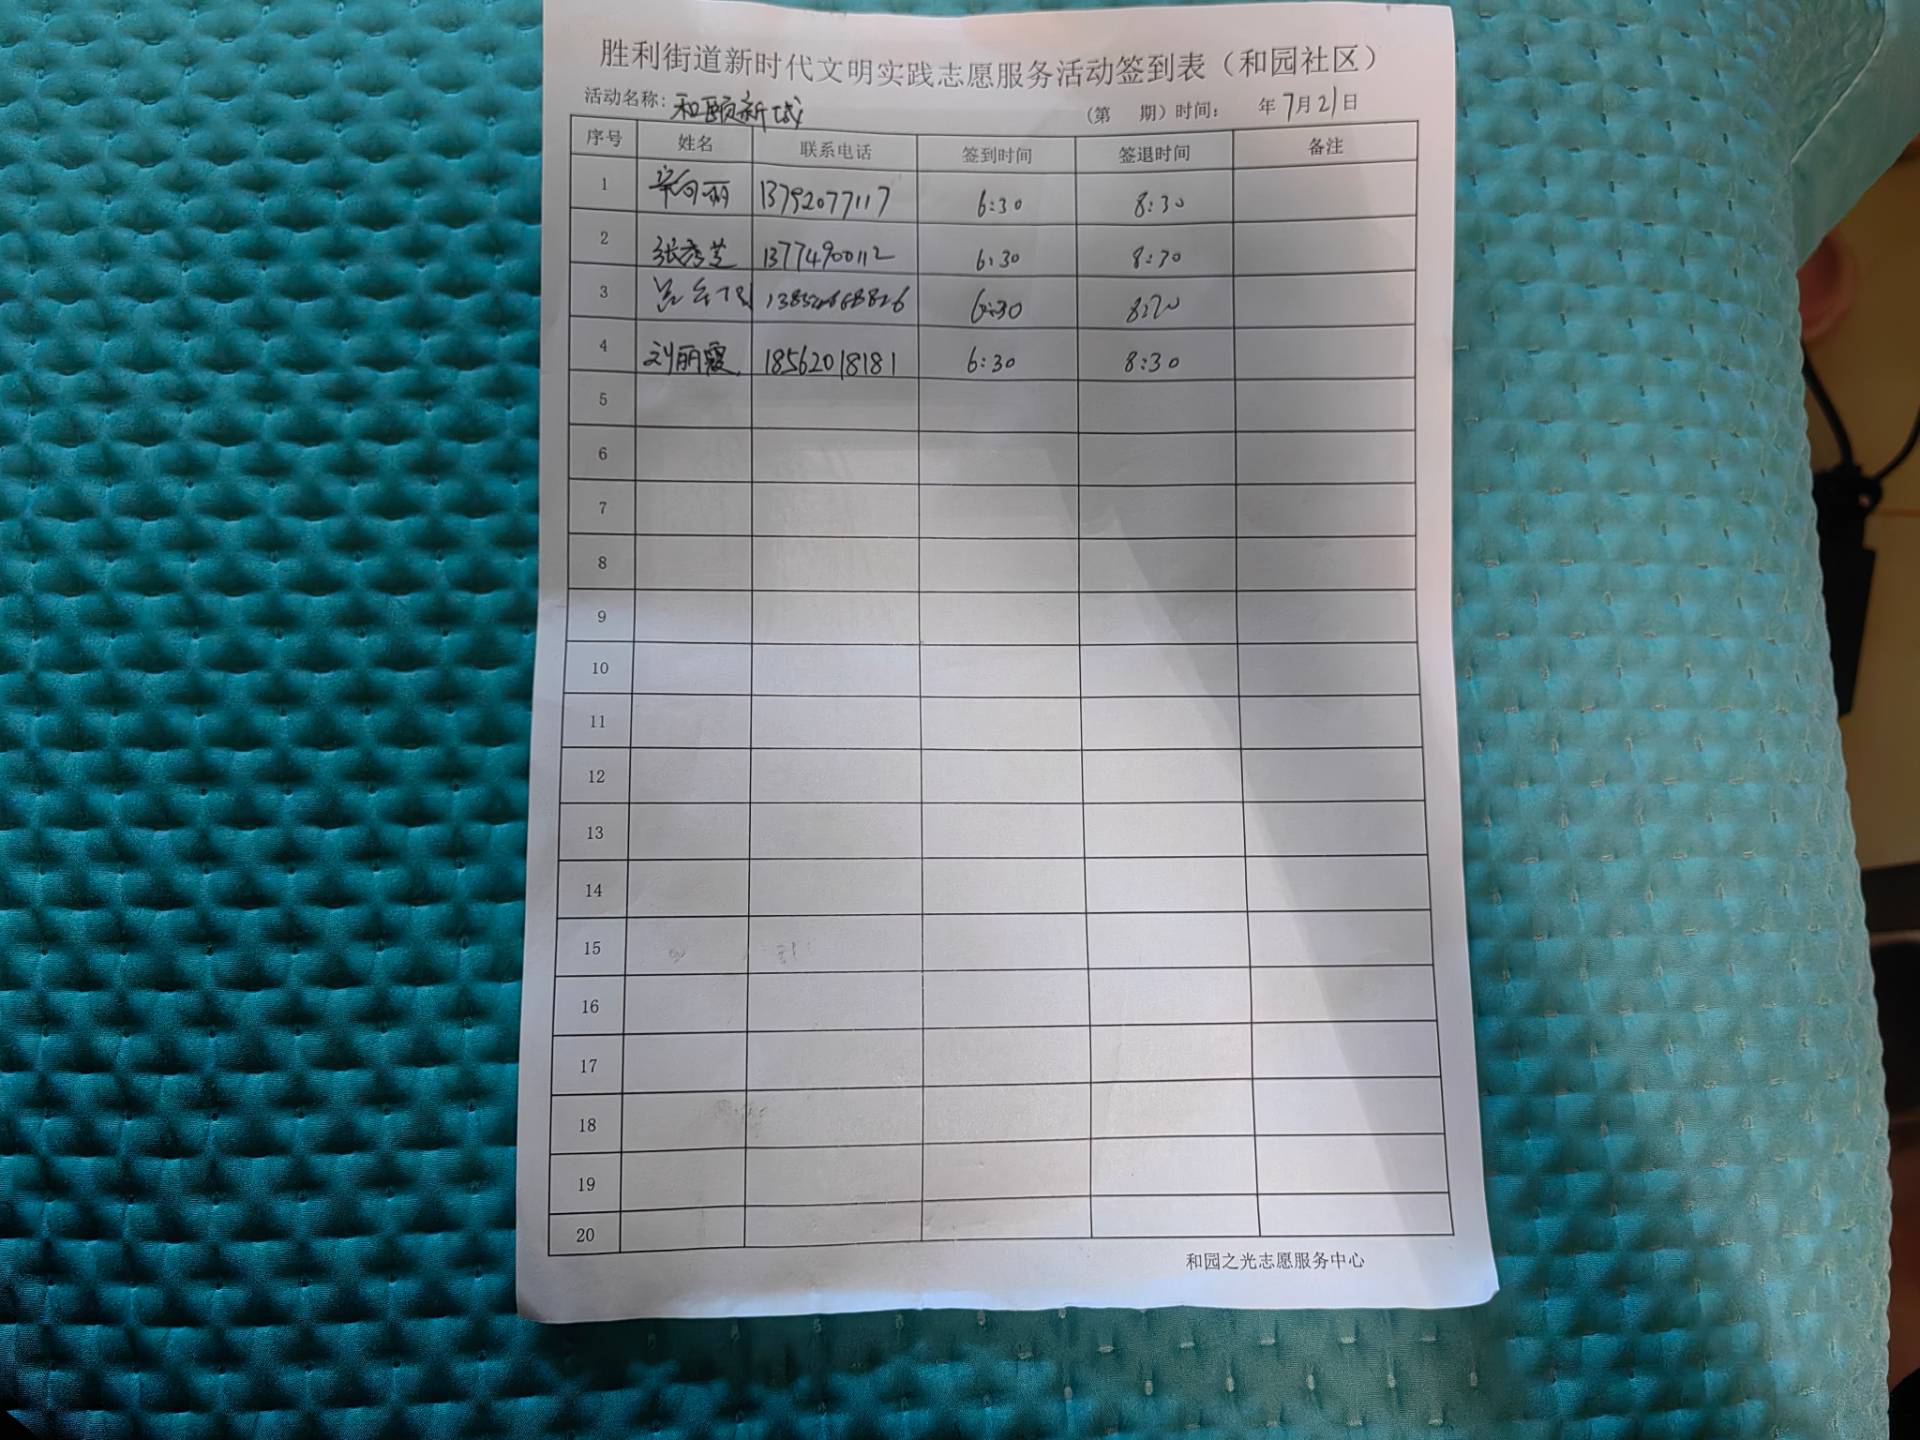 胜利街道新时代文明实践志愿服务活动签到表（和园社区）
活动名称：和颐新城 （第 期）时间： 年7月21日
序号 姓名 联系电话 签到时间 签退时间 备注
1 辛向丽 13792077117 6:30 8:30
2 张秀芝 13774900112 6:30 8:30
3 6:30
4 刘丽霞 18562018181 6:30 8:30
5
6
7
8
9
10
11
12
13
14
15
16
17
18
19
20
和园之光志愿服务中心